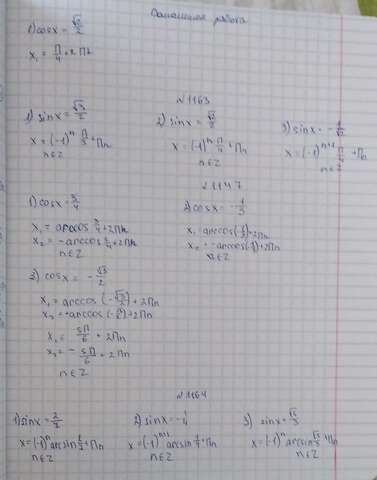 Домашняя работа
1) cos x = √2/2
x₁ = П/4 + 2П
№1163
1) sin x = √3/2
x = (-1)ⁿ П/3 + Пn
n∈Z
2) sin x = √2/2
x = (-1)ⁿ П/4 + Пn
n∈Z
3) sin x = - 1/√2
x = (-1)ⁿ⁺¹ П/4 + Пn
n∈Z
1147
1) cos x = 3/4
x₁ = arccos 3/4 + 2Пn
x₂ = -arccos 3/4 + 2Пn
n∈Z
2) cos x = -1/3
x₁ = arccos(-1/3) + 2Пn
x₂ = -arccos(-1/3) + 2Пn
n∈Z
3) cos x = - √3/2
x₁ = arccos(-√3/2) + 2Пn
x₂ = -arccos(-√3/2) + 2Пn
x₁ = 5П/6 + 2Пn
x₂ = - 5П/6 + 2Пn
n∈Z
№1164
1) sin x = 2/7
x = (-1)ⁿ arcsin 2/7 + Пn
n∈Z
2) sin x = -1/4
x = (-1)ⁿ⁺¹ arcsin 1/4 + Пn
n∈Z
3) sin x = √5/3
x = (-1)ⁿ arcsin √5/3 + Пn
n∈Z